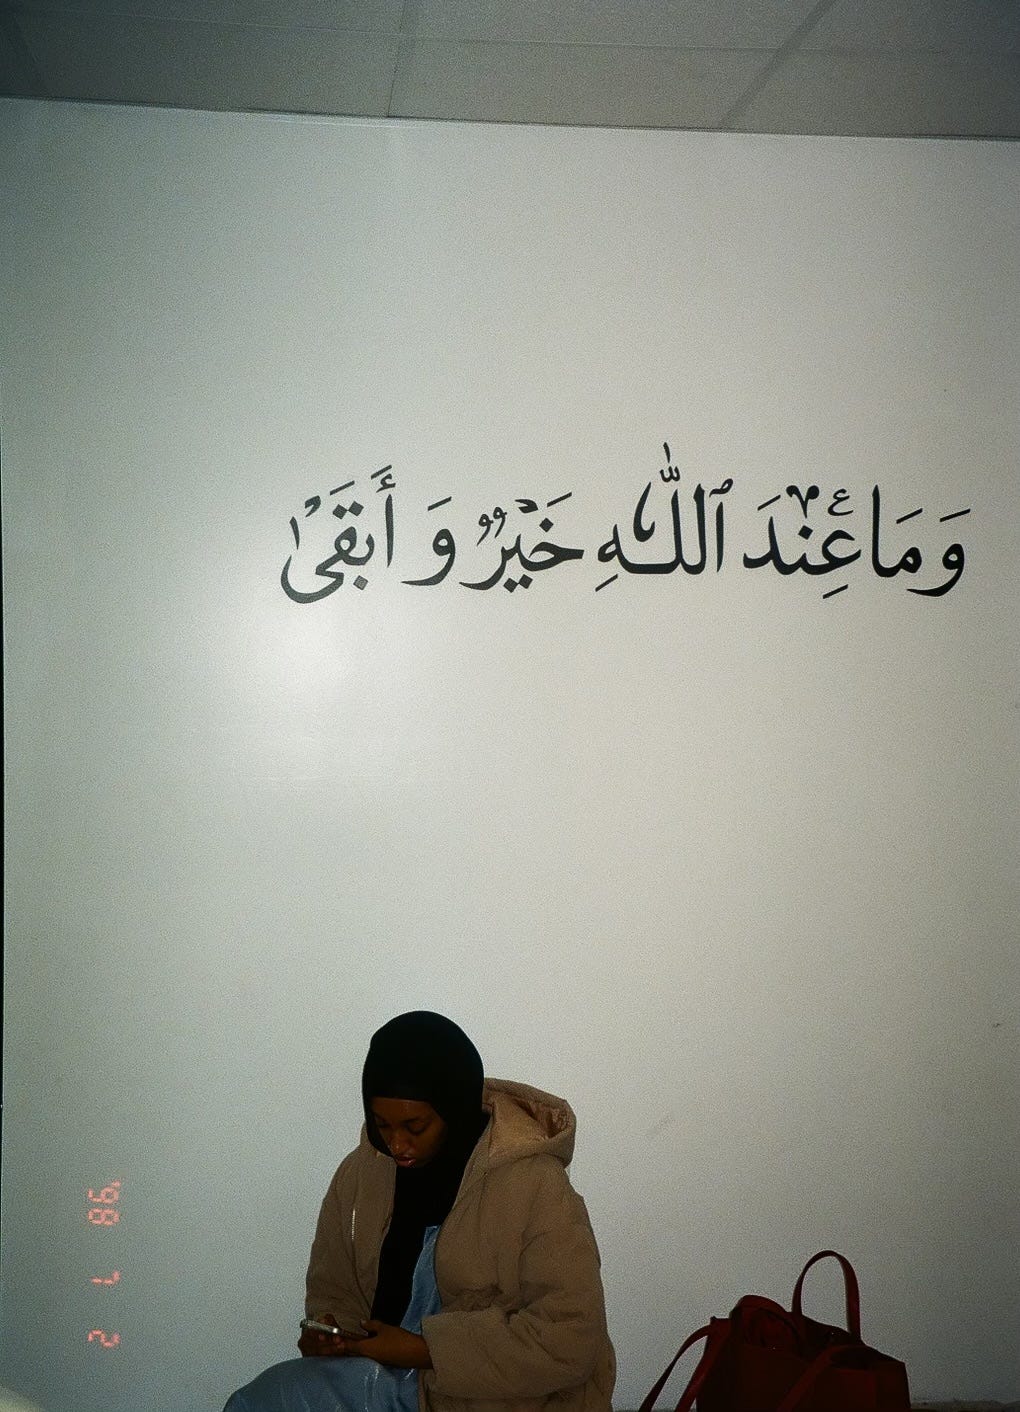 وَمَا عِندَ ٱللَّهِ خَيْرٌ وَ أَبْقَىٰ
'98 7 2